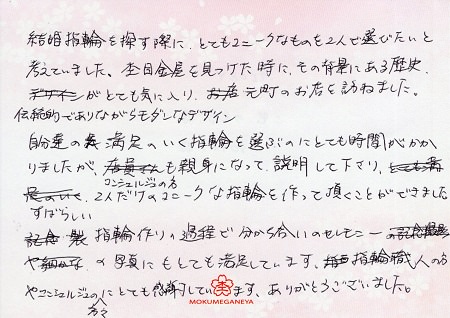 結婚指輪を探す際に、とてもユニークなものを2人で選びたいと
考えていました。杢目金屋を見つけた時に、その背景にある歴史、
デザインがとても気に入り、お店 元町のお店を訪ねました。
伝統的でありながらモダンなデザイン
自分達の 満足のいく指輪を選ぶのにとても時間がかか
りましたが、店員さんも親身になって、説明して下さり、
コンシェルジュの方
2人だけのユニークな指輪を作って頂くことができました
すばらしい
指輪作りの過程で分かち合いのセレモニー
や の写真にもとても満足しています。 指輪職人の方
やコンシェルジュの方々にとても感謝しています。ありがとうございました。
MOKUMEGANEYA